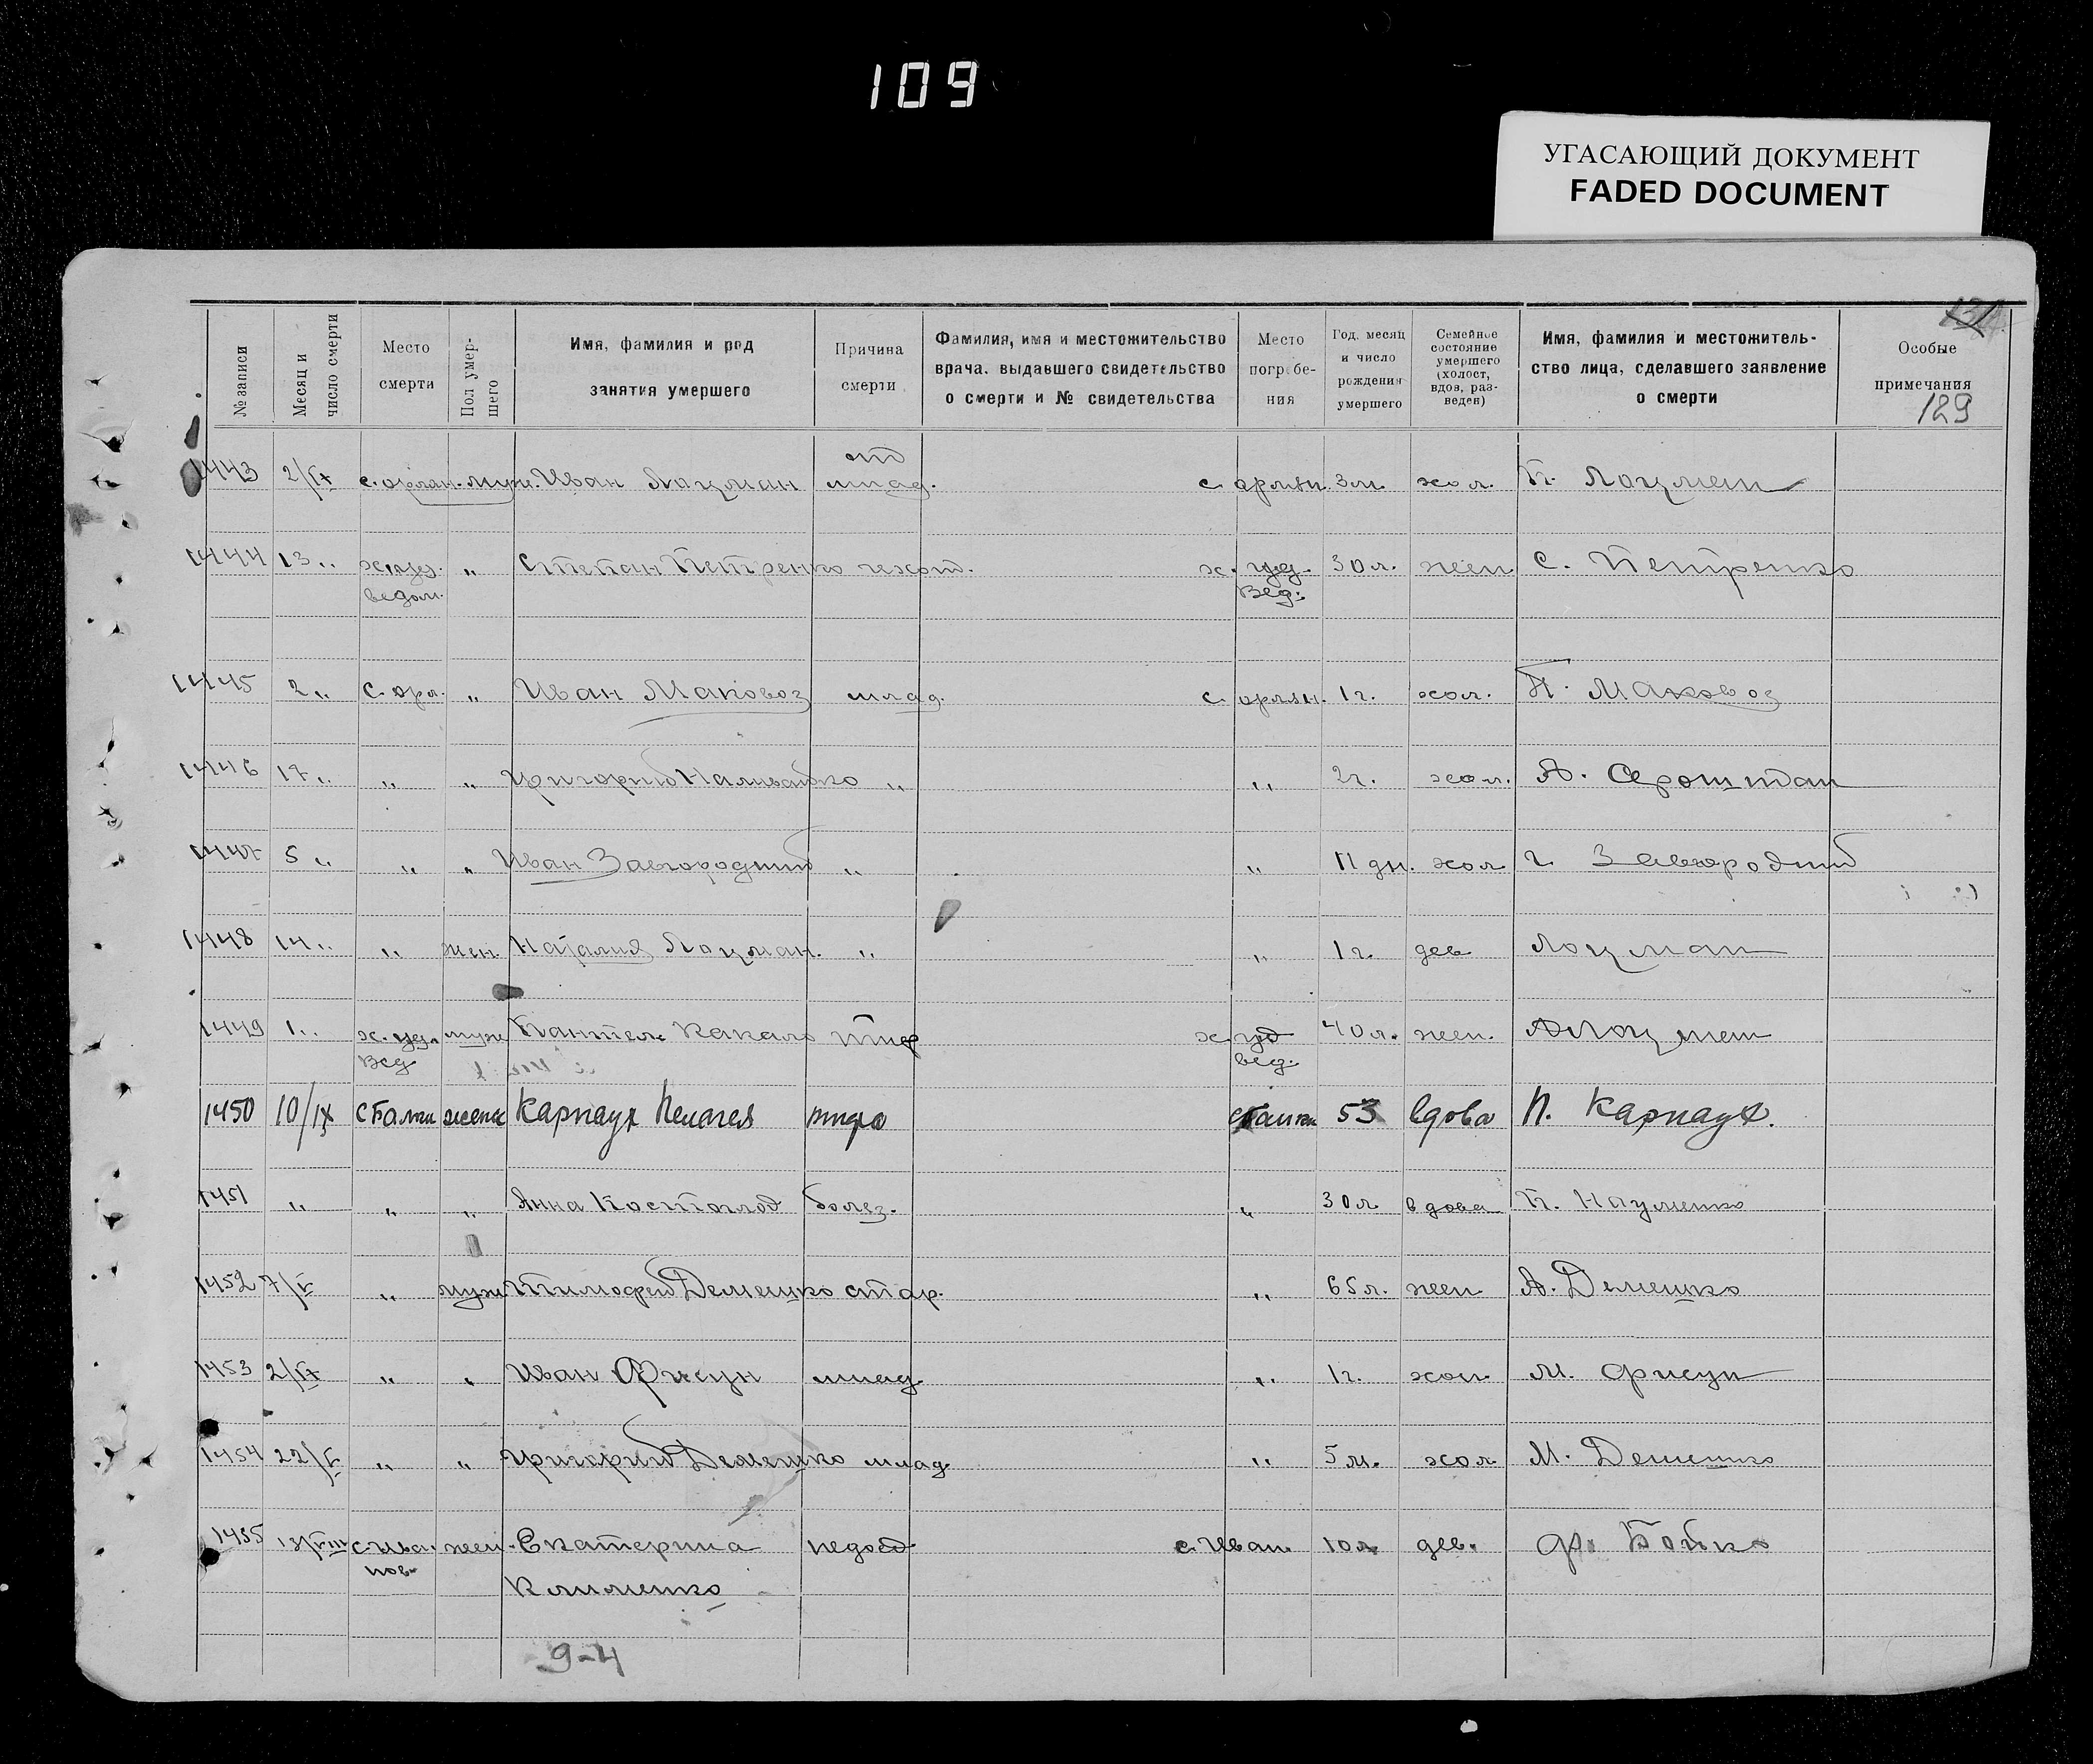 109
УГАСАЮЩИЙ ДОКУМЕНТ
FADED DOCUMENT
129
№ записи
Месяц и число смерти
Место смерти
Пол умершего
Имя, фамилия и род занятия умершего
Причина смерти
Фамилия, имя и местожительство врача, выдавшего свидетельство о смерти и № свидетельства
Место погребения
Год, месяц и число рождения умершего
Семейное состояние умершего (холост, вдов, разведен)
Имя, фамилия и местожительство лица, сделавшего заявление о смерти
Особые примечания
1443 2/IX муж. Иван Лоцман млад. 3 м. хол. П. Лоцман
1444 13 " " Степан Петренко 30 л. жен С. Петренко
ведом. вед.
1445 2 " с. орл. " Иван Маковоз млад. с. орлян. 1 г. хол. П. Маковоз
1446 17 " " " Григорий Наливайко " " 2 г. хол. А.
1447 5 " " " Иван Завгородний " " 11 дн. хол Г. Завгородний
1448 14 " " жен. Наталия Лоцман. " " 1 г. дев Лоцман
1449 1 " муж Пантел. тиф 40 л. жен. Лоцман
вед вед.
1450 10/IX женс Карпаух Пелагея тифа 53 вдова П. Карпаух.
1451 " " " Анна Костоглод болез. " 30 л вдова П. Науменко
1452 " муж Тимофей Демешко стар. " 65 л. жен А. Демешко
1453 " " Иван Фисун млад. " 1 г. хол. М. Фисун
1454 " " Григорий Демешко млад. " 5 м. хол М. Демешко
1455 с. Ива- жен. Екатерина недоед с. Иван. 10 л дев. Ф. Бойко
нов- Клименко
9-4